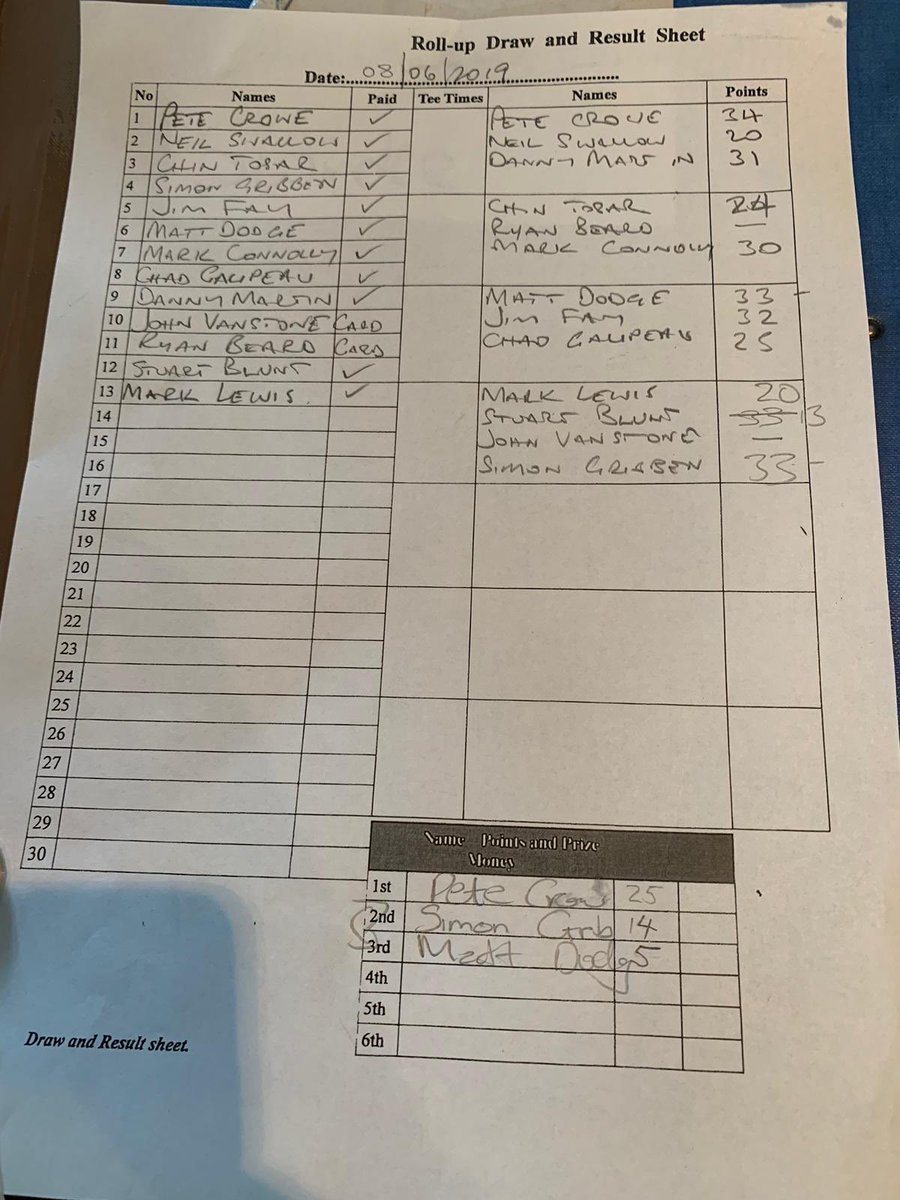 Roll-up Draw and Result Sheet
Date:..08/06/2019..............................
No Names Paid Tee Times Names Points
1 PETE CROWE ✓ PETE CROWE 34
2 NEIL SWALLOW ✓ NEIL SWALLOW 20
3 CHIN TOBAR ✓ DANNY MARTIN 31
4 SIMON GRIBBEN ✓
5 JIM FAY ✓ CHIN TOBAR 24
6 MATT DODGE ✓ RYAN BEARD —
7 MARK CONNOLLY ✓ MARK CONNOLLY 30
8 CHAD GALIPEAU ✓
9 DANNY MARTIN ✓ MATT DODGE 33
10 JOHN VANSTONE CARD JIM FAY 32
11 RYAN BEARD CARD CHAD GALIPEAU 25
12 STUART BLUNT ✓
13 MARK LEWIS. ✓ MARK LEWIS 20
14 STUART BLUNT 33 13
15 JOHN VANSTONE —
16 SIMON GRIBBEN 33
17
18
19
20
21
22
23
24
25
26
27
28
29
30
Name Points and Prize
Money
1st Pete Crowe 25
2nd Simon Grib 14
3rd Matt Dodg 5
4th
5th
6th
Draw and Result sheet.